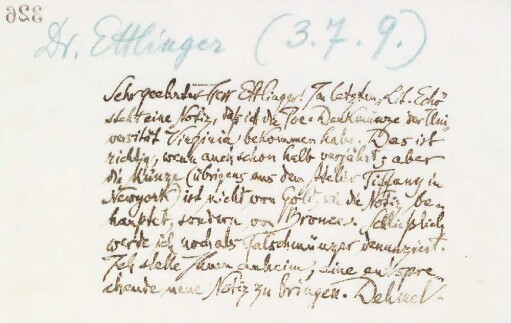 326
Dr. Ettlinger (3.7.9.)
Sehr geehrter Herr Ettlinger! Im letzten „Lit. Echo"
steht eine Notiz, daß ich die Poe-Denkmünze der Uni-
versität Virginia bekommen habe. Das ist
richtig, wenn auch schon halb verjährt; aber
die Münze (übrigens aus dem Atelier Tiffany in
Newyork) ist nicht von Gold, wie die Notiz be-
hauptet, sondern von Bronce. Schließlich
werde ich noch als Falschmünzer denunziert.
Ich stelle Ihnen anheim, eine entspre-
chende neue Notiz zu bringen. Dehmel.